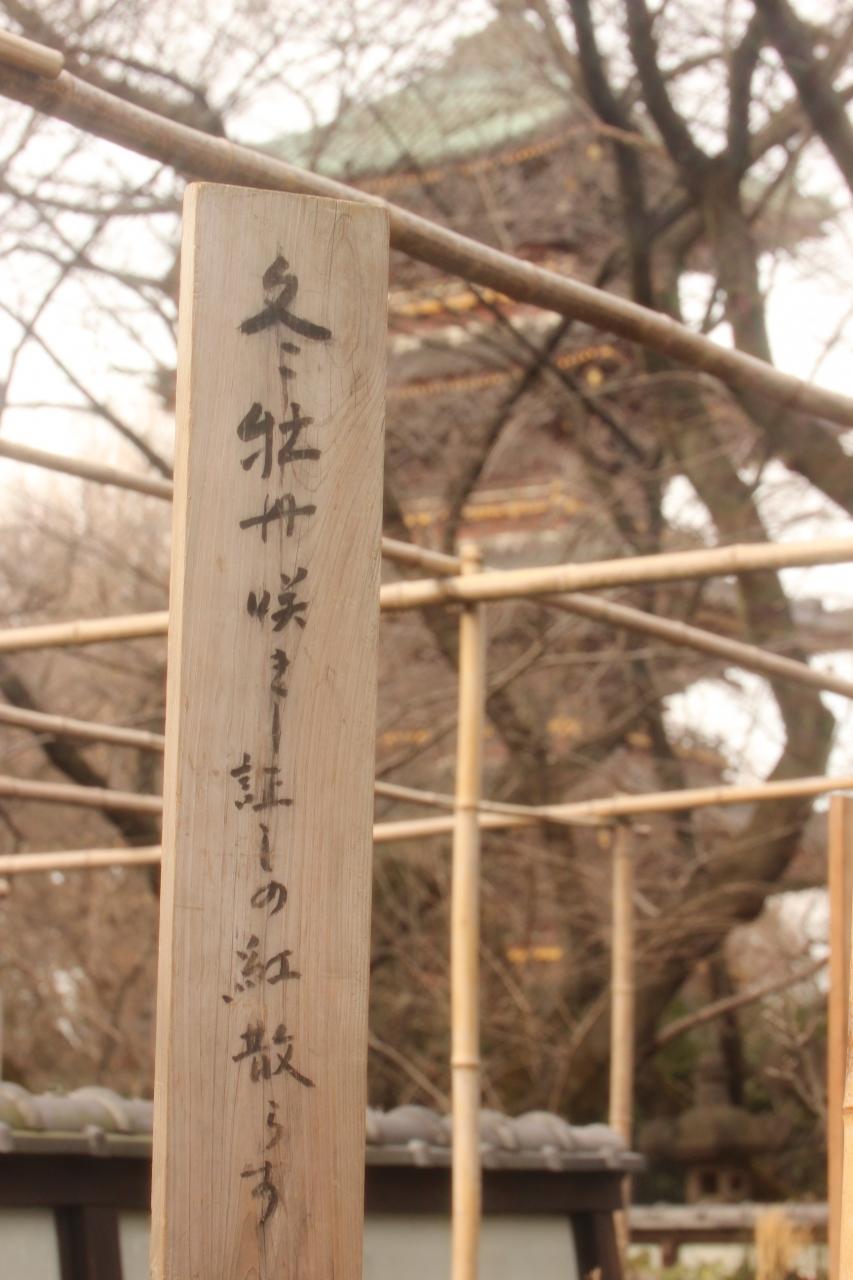 冬牡丹咲きし証しの紅散らす